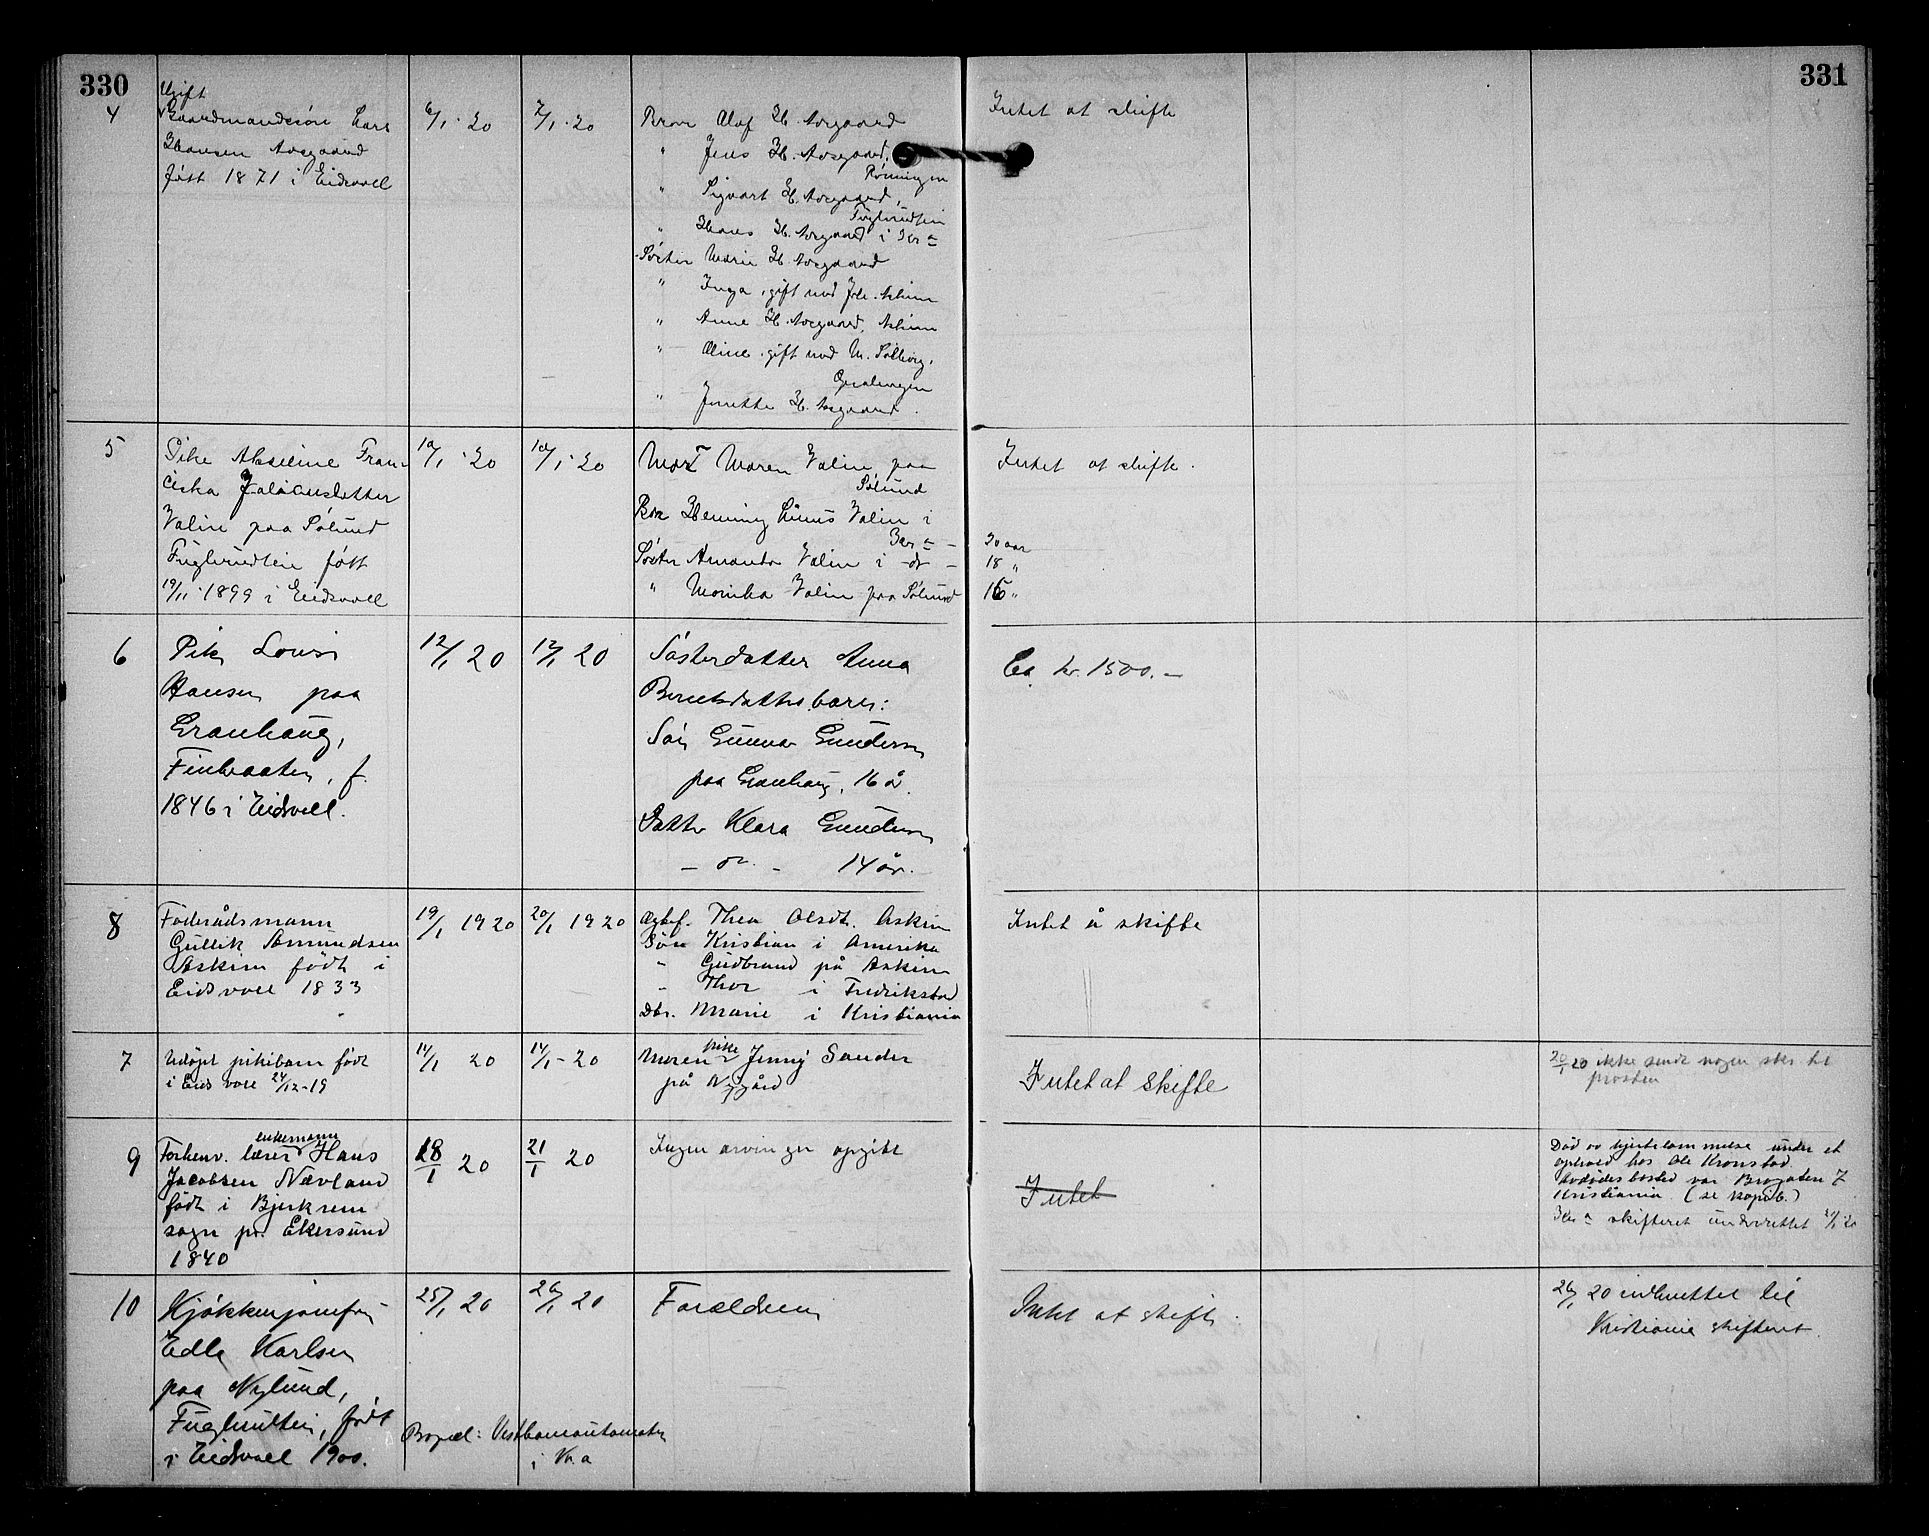 330
331
4
Ugift
Gaardmandssön Lars
Hansen Aasgaard
født 1871 i Eidsvoll
6/1 · 20
7/1 · 20
Bror Olaf H. Aasgaard
" Jens H. Aasgaard,
Rønningen
" Sigvart H. Aasgaard,
" Hans H. Aasgaard i Kr a
Søster Marie H. Aasgaard
" Inga, gift med Joh. Askim
" Anne H. Aasgaard, Askim
" Oline, gift med M. Solberg,
" Jenette H. Aasgaard.
Intet at skifte
5
Pike Akseline Fran-
ciska Juliansdatter
Valin paa Sølund
født
19/11 · 1899 i Eidsvoll
10/1 · 20
10/1 · 20
Mor Maren Valin paa
Sølund
Bror Henning Linus Valin i
Kr a -
Søster Amanda Valin i - do -
" Monika Valin paa Sølund
Intet at skifte.
20 aar
18 "
15 "
6
Pike Lovise
Hansen paa
Granhaug,
Finbraaten, f.
1846 i Eidsvoll.
12/1 20
12/1 20
Søsterdatter Anna
Berntsdatters barn:
Søn Gunnar Gundersen
paa Granhaug, 16 å.
Datter Klara Gundersen
- do - 14 år.
Ca kr. 1500.-
8
Føderådsmann
Gullik Amundsen
Askim født i
Eidsvoll 1833
19/1 1920
20/1 1920
Ektef. Thea Olsdt. Askim
Søn Kristian i Amerika
" Gudbrand på Askim
" Thor i Fredrikstad
Dtr. Marie i Kristiania
Intet å skifte
7
Udøpt pikebarn født
i Eidsvoll 24/12-19
14/1 20
14/1 - 20
Moren pike Jenny Sander
på Nygård
Intet at skifte
20/1 20 ikke sendt nogen
9
Forhenv. lærer enkemann Hans
Jacobsen Nævland
født i Bjerkrem
sogn pr. Ekersund
1840
18/1 20
21/1 20
Ingen arvinger opgit
Intet
Død av hjertelammelse under et
ophold hos Ole Kronstad.
Avdødes bosted var Brogaten 7
Kristiania (se kopib.)
Kr a skifteret underrettet 21/1 20
10
Kjøkkenjomfru
Edle Karlsen
paa Nylund,
født
i Eidsvoll 1900.
25/1 20
26/1 20
Forældrene
Bopæl: Vestbaneautomaten
i Kr. a
Intet at skifte.
26/1 20 indberettet til
Kristiania skifteret.